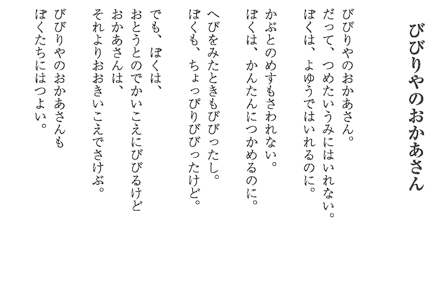 びびりやのおかあさん
びびりやのおかあさん。
だって、つめたいうみにはいれない。
ぼくは、よゆうではいれるのに。
かぶとのめすもさわれない。
ぼくは、かんたんにつかめるのに。
へびをみたときもびびったし。
ぼくも、ちょっぴりびびったけど。
でも、ぼくは、
おとうとのでかいこえにびびるけど
おかあさんは、
それよりおおきいこえでさけぶ。
びびりやのおかあさんも
ぼくたちにはつよい。